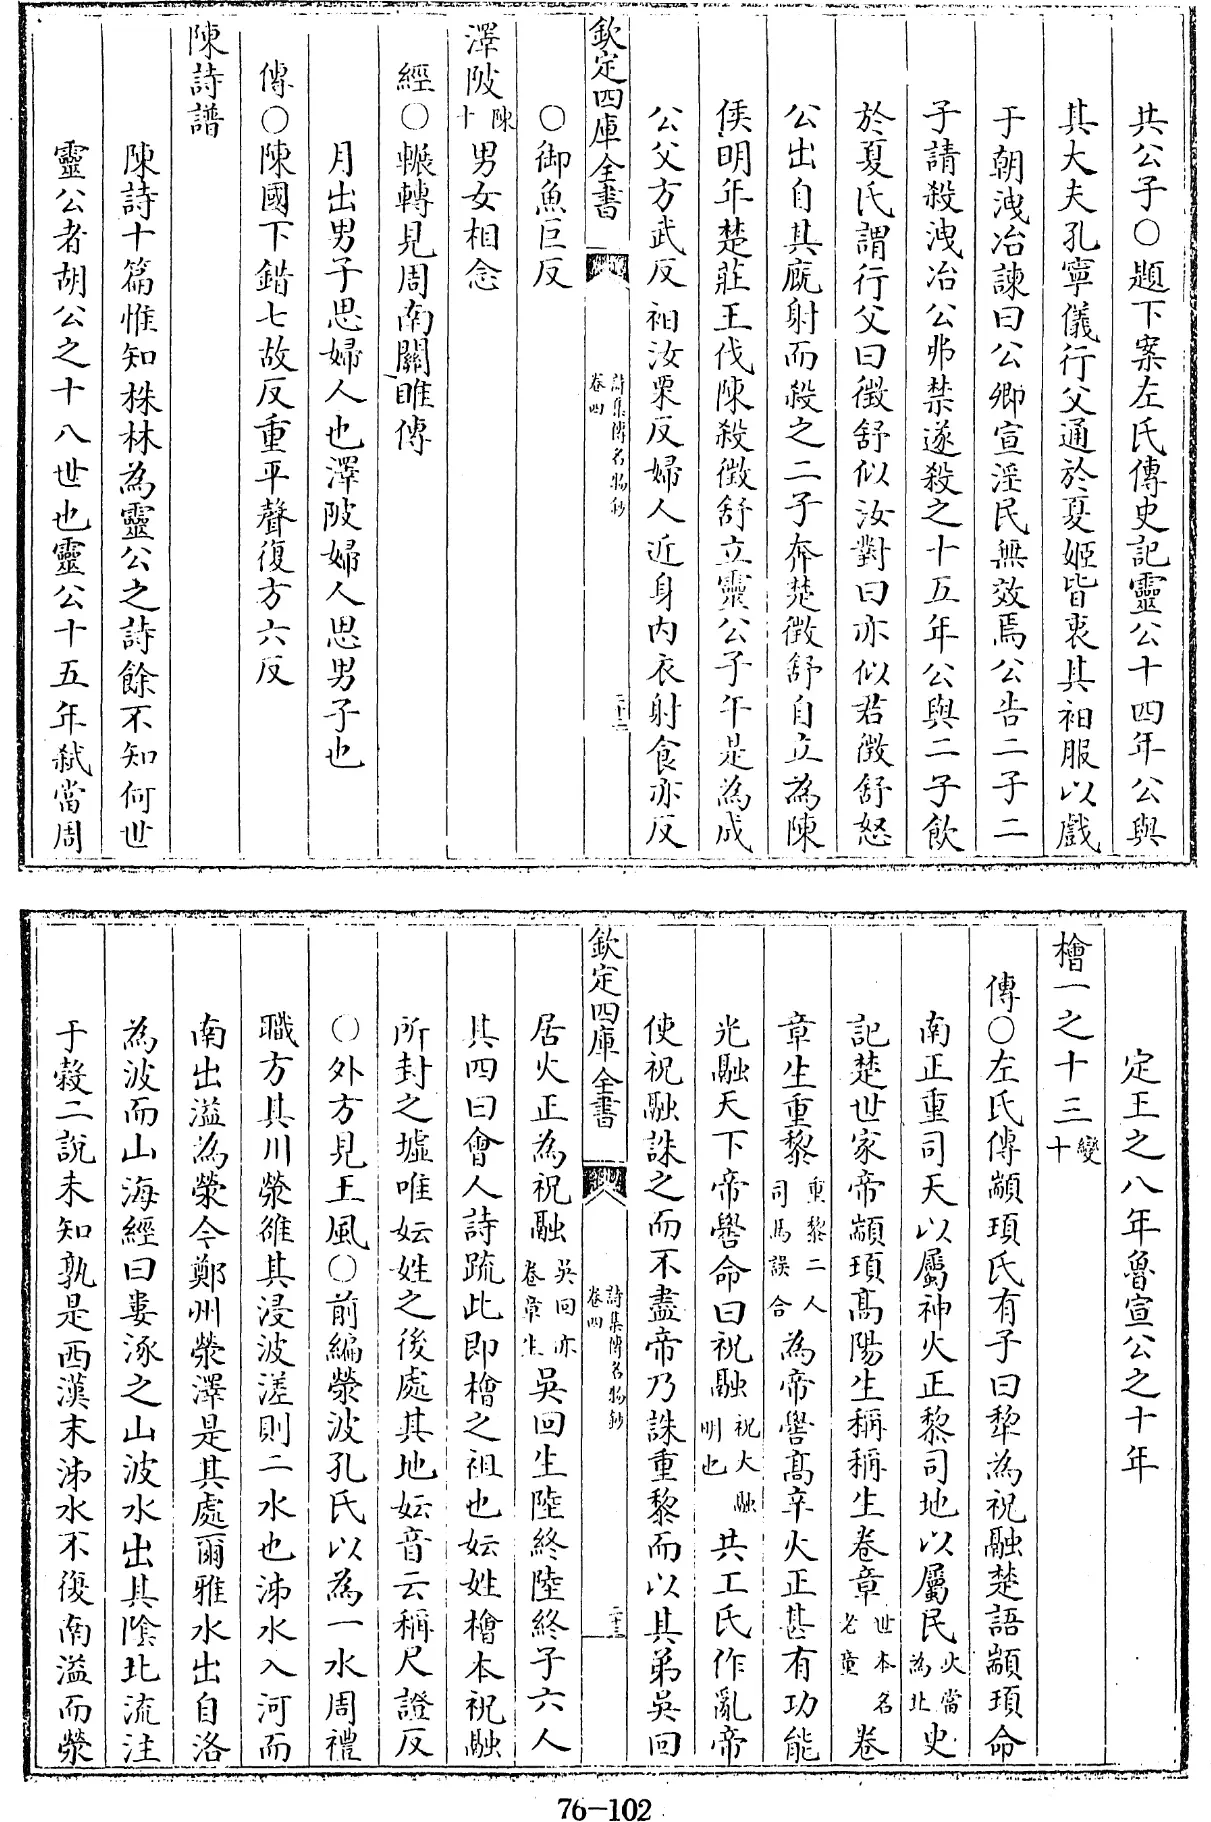 共公子○題下案左氏傳史記靈公十四年公與
其大夫孔寧儀行父通於夏姬皆衷其衵服以戲
于朝洩冶諫曰公卿宣淫民無效焉公告二子二
子請殺洩冶公弗禁遂殺之十五年公與二子飲
於夏氏謂行父曰徵舒似汝對曰亦似君徵舒怒
公出自其廐射而殺之二子奔楚徵舒自立為陳
侯明年楚莊王伐陳殺徵舒立靈公子午是為成
公父方武反衵汝栗反婦人近身内衣射食亦反
欽定四庫全書
詩集傳名物鈔
卷四
二十二
○御魚巨反
澤陂陳十男女相念
經○輾轉見周南關雎傳
月出男子思婦人也澤陂婦人思男子也
傳○陳國下錯七故反重平聲復方六反
陳詩譜
陳詩十篇惟知株林為靈公之詩餘不知何世
靈公者胡公之十八世也靈公十五年弑當周
定王之八年魯宣公之十年
檜一之十三變十
傳○左氏傳顓頊氏有子曰犂為祝融楚語顓頊命
南正重司天以屬神火正黎司地以屬民火當為北史
記楚世家帝顓頊髙陽生稱稱生卷章世本名老童卷
章生重黎重黎二人司馬誤合為帝嚳髙辛火正甚有功能
光融天下帝嚳命曰祝融祝大融明也共工氏作亂帝
使祝融誅之而不盡帝乃誅重黎而以其弟吳回
欽定四庫全書
詩集傳名物鈔
卷四
二十三
居火正為祝融吳回亦卷章生吳回生陸終陸終子六人
其四曰會人詩疏此即檜之祖也妘姓檜本祝融
所封之墟唯妘姓之後處其地妘音云稱尺證反
○外方見王風○前編滎波孔氏以為一水周禮
職方其川滎雒其浸波溠則二水也沛水入河而
南出溢為滎今鄭州滎澤是其處爾雅水出自洛
為波而山海經曰婁涿之山波水出其隂北流注
于穀二說未知孰是西漢末沛水不復南溢而滎
76-102